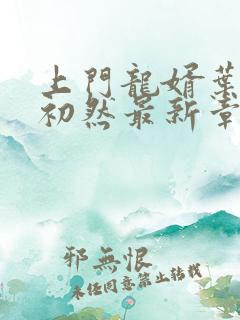 上門龍婿葉
初然最新章
邪無恨
未經同意禁止轉載